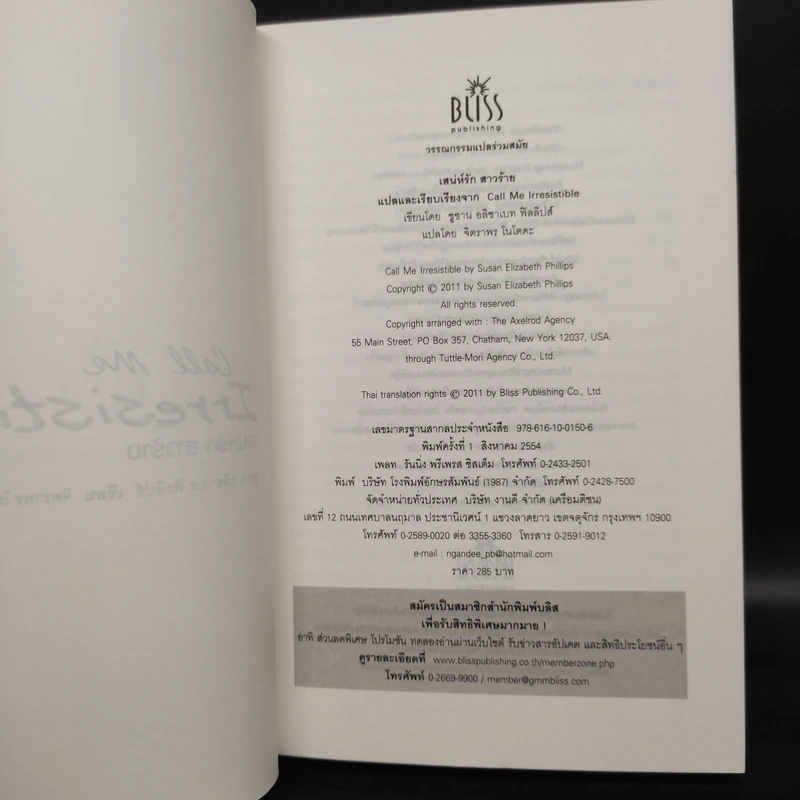 BLISS
publishing
วรรณกรรมแปลร่วมสมัย
เสน่ห์รัก สาวร้าย
แปลและเรียบเรียงจาก Call Me Irresistible
เขียนโดย ซูซาน อลิซาเบท ฟิลลิปส์
แปลโดย จิตราพร โนโตดะ
Call Me Irresistible by Susan Elizabeth Phillips
Copyright © 2011 by Susan Elizabeth Phillips
All rights reserved.
Copyright arranged with : The Axelrod Agency
55 Main Street, PO Box 357, Chatham, New York 12037, USA.
through Tuttle-Mori Agency Co., Ltd.
Thai translation rights © 2011 by Bliss Publishing Co., Ltd.
เลขมาตรฐานสากลประจำหนังสือ 978-616-10-0150-6
พิมพ์ครั้งที่ 1 สิงหาคม 2554
เพลท รันนิ่ง พรีเพรส ซิสเต็ม โทรศัพท์ 0-2433-2501
พิมพ์ บริษัท โรงพิมพ์อักษรสัมพันธ์ (1987) จำกัด โทรศัพท์ 0-2428-7500
จัดจำหน่ายทั่วประเทศ บริษัท งานดี จำกัด (เครือมติชน)
เลขที่ 12 ถนนเทศบาลนฤมาล ประชานิเวศน์ 1 แขวงลาดยาว เขตจตุจักร กรุงเทพฯ 10900
โทรศัพท์ 0-2589-0020 ต่อ 3355-3360 โทรสาร 0-2591-9012
e-mail : ngandee_pb@hotmail.com
ราคา 285 บาท
สมัครเป็นสมาชิกสำนักพิมพ์บลิส
เพื่อรับสิทธิพิเศษมากมาย !
อาทิ ส่วนลดพิเศษ โปรโมชัน ทดลองอ่านผ่านเว็บไซต์ รับข่าวสารอัปเดต และสิทธิประโยชน์อื่น ๆ
ดูรายละเอียดที่ www.blisspublishing.co.th/memberzone.php
โทรศัพท์ 0-2669-9900 / member@gmmbliss.com